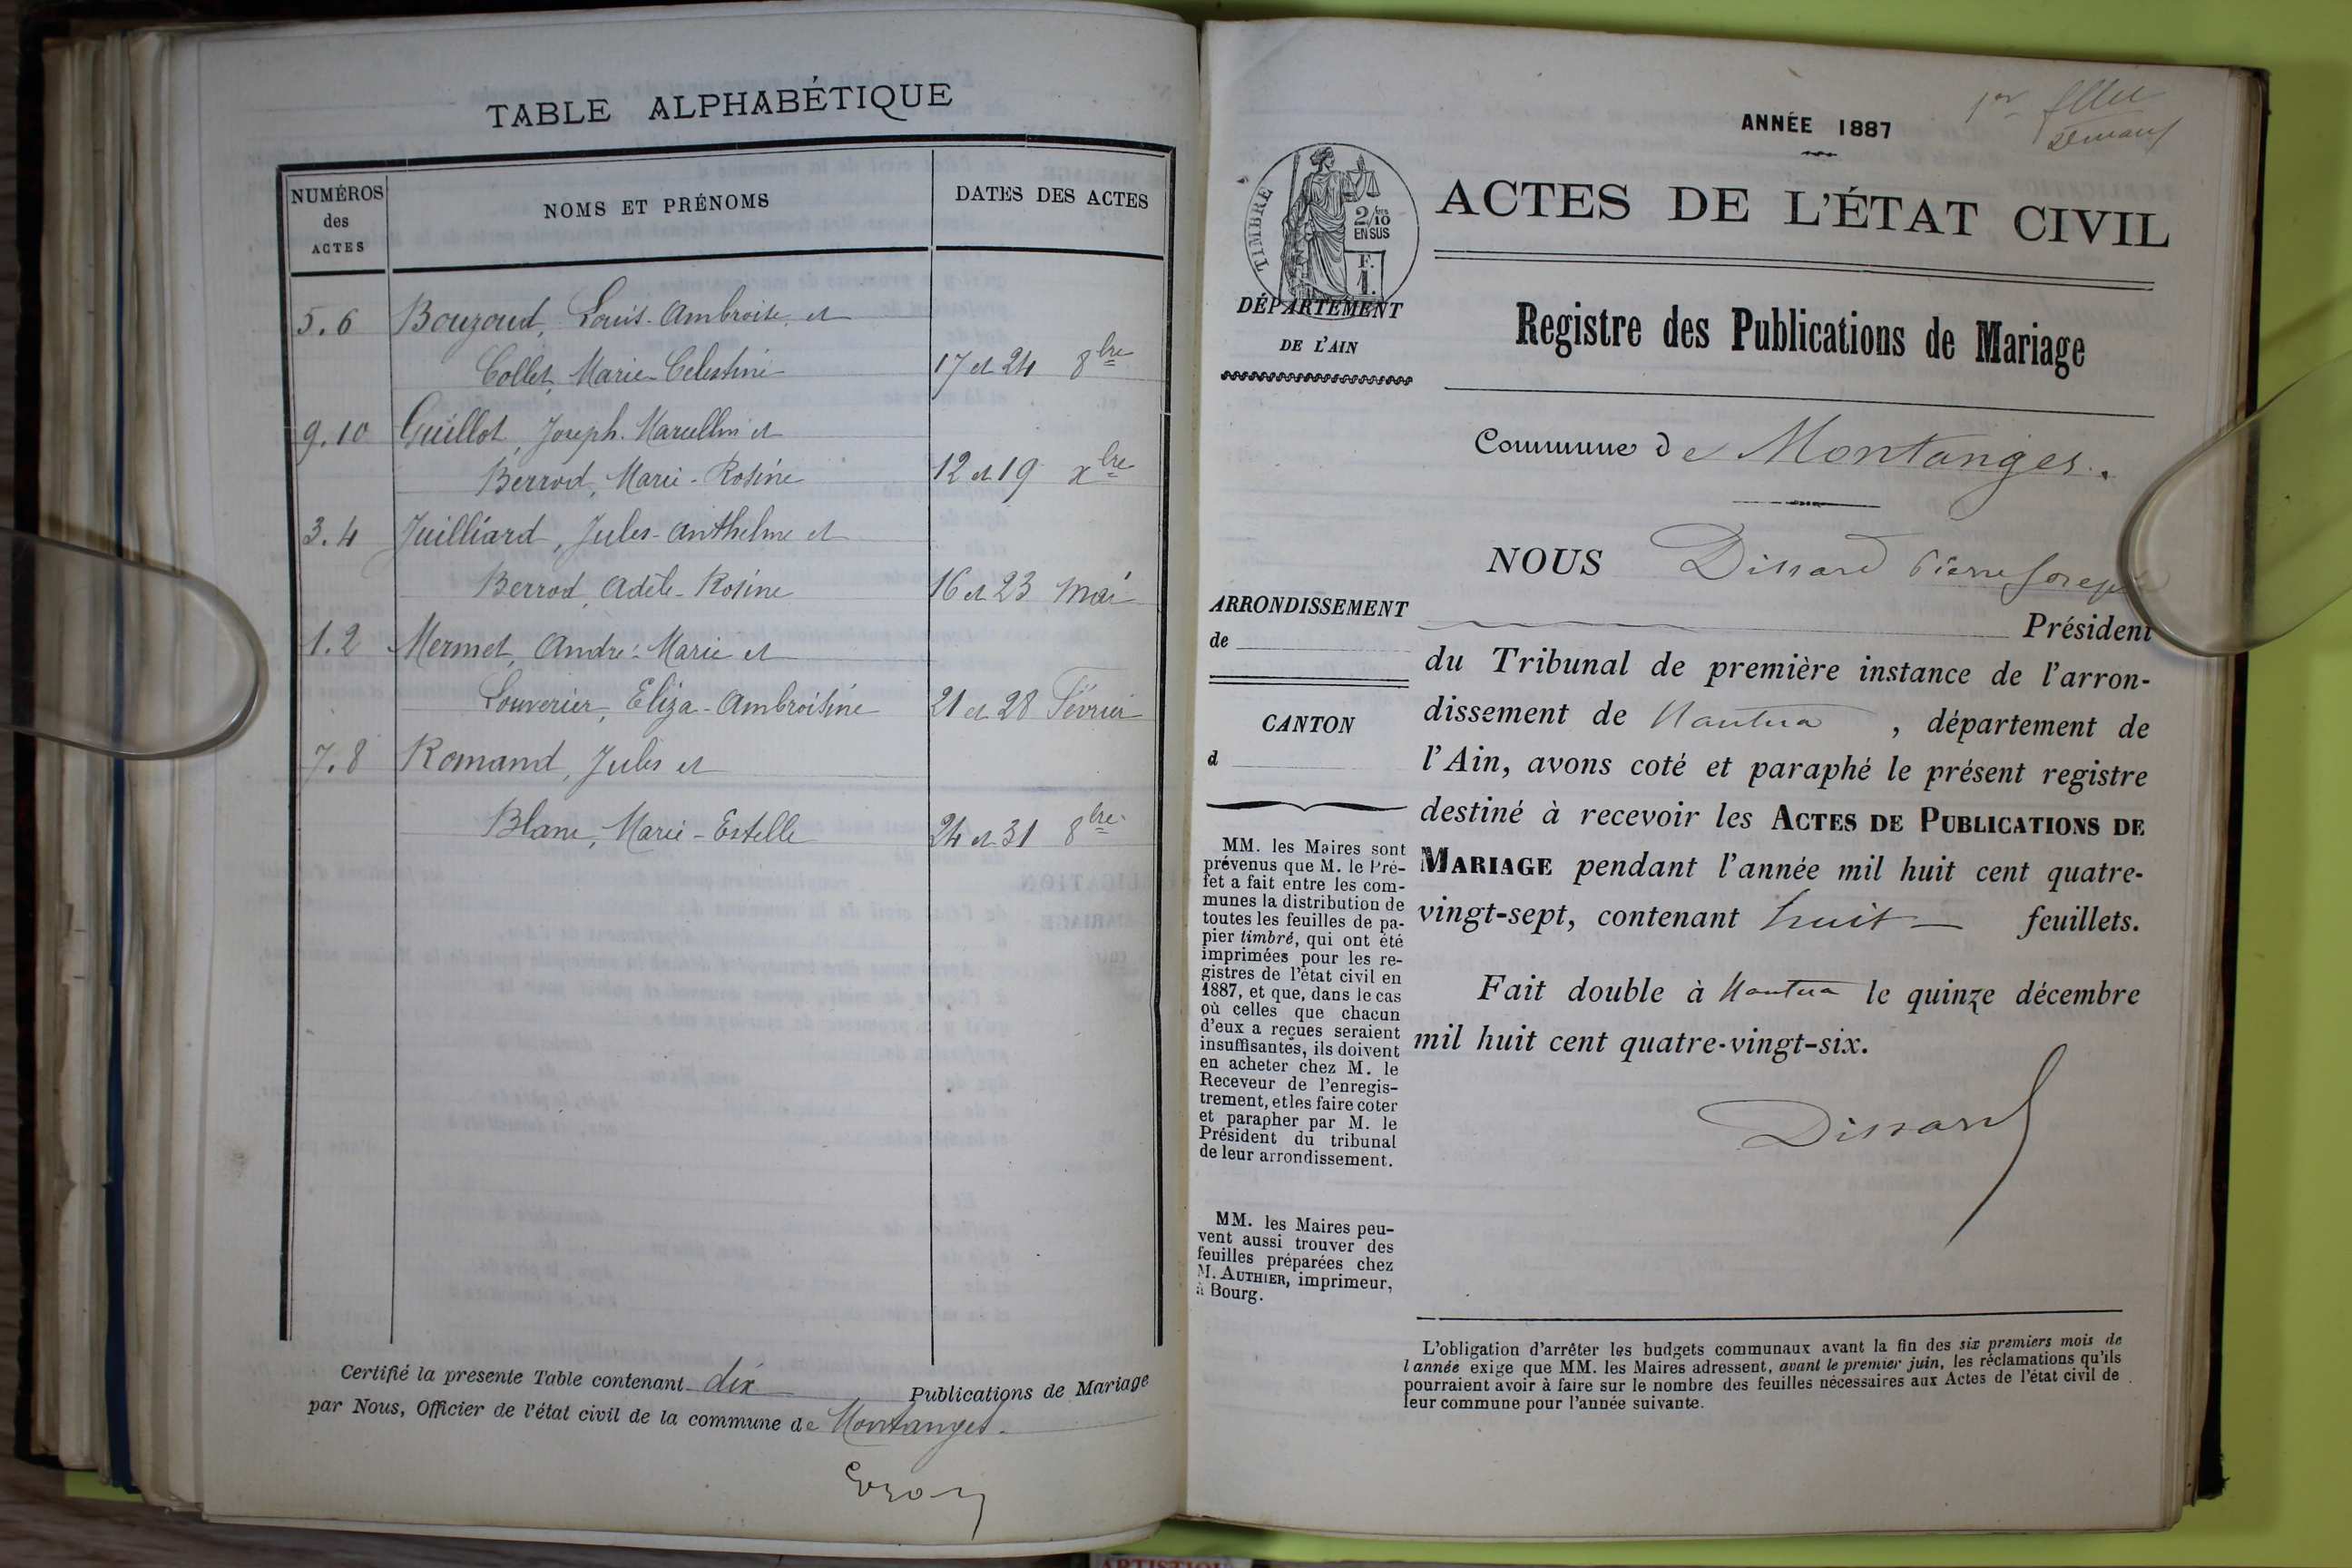 TABLE ALPHABÉTIQUE
NUMÉROS
des
ACTES
NOMS ET PRÉNOMS
DATES DES ACTES
5.6 Bouzoud, Louis-Ambroise et
Collet, Marie-Celestine 17 et 24 8bre
9.10 Guillot, Joseph-Marcellin et
Berrod, Marie-Rosine 12 et 19 xbre
3.4 Juilliard, Jules-Anthelme et
Berrod, Adèle-Rosine 16 et 23 Mai
1.2 Mermet, André-Marie et
Louverier, Eliza-Ambroisine 21 et 28 Février
7.8 Romand, Jules et
Blanc, Marie-Estelle 24 et 31 8bre
Certifié la présente Table contenant dix Publications de Mariage
par Nous, Officier de l'état civil de la commune de Montanges.
1er
ANNÉE 1887
TIMBRE
2/10
EN SUS
F.
1.
ACTES DE L'ÉTAT CIVIL
DÉPARTEMENT
DE L'AIN
Registre des Publications de Mariage
Commune de Montanges.
NOUS Dissard Pierre Joseph
Président
ARRONDISSEMENT
de
CANTON
d
du Tribunal de première instance de l'arron-
dissement de Nantua, département de
l'Ain, avons coté et paraphé le présent registre
destiné à recevoir les ACTES DE PUBLICATIONS DE
MARIAGE pendant l'année mil huit cent quatre-
vingt-sept, contenant huit feuillets.
Fait double à Nantua le quinze décembre
mil huit cent quatre-vingt-six.
Dissard
MM. les Maires sont
prévenus que M. le Pré-
fet a fait entre les com-
munes la distribution de
toutes les feuilles de pa-
pier timbré, qui ont été
imprimées pour les re-
gistres de l'état civil en
1887, et que, dans le cas
où celles que chacun
d'eux a reçues seraient
insuffisantes, ils doivent
en acheter chez M. le
Receveur de l'enregis-
trement, et les faire coter
et parapher par M. le
Président du tribunal
de leur arrondissement.
MM. les Maires peu-
vent aussi trouver des
feuilles préparées chez
M. AUTHIER, imprimeur,
à Bourg.
L'obligation d'arrêter les budgets communaux avant la fin des six premiers mois de
l'année exige que MM. les Maires adressent, avant le premier juin, les réclamations qu'ils
pourraient avoir à faire sur le nombre des feuilles nécessaires aux Actes de l'état civil de
leur commune pour l'année suivante.